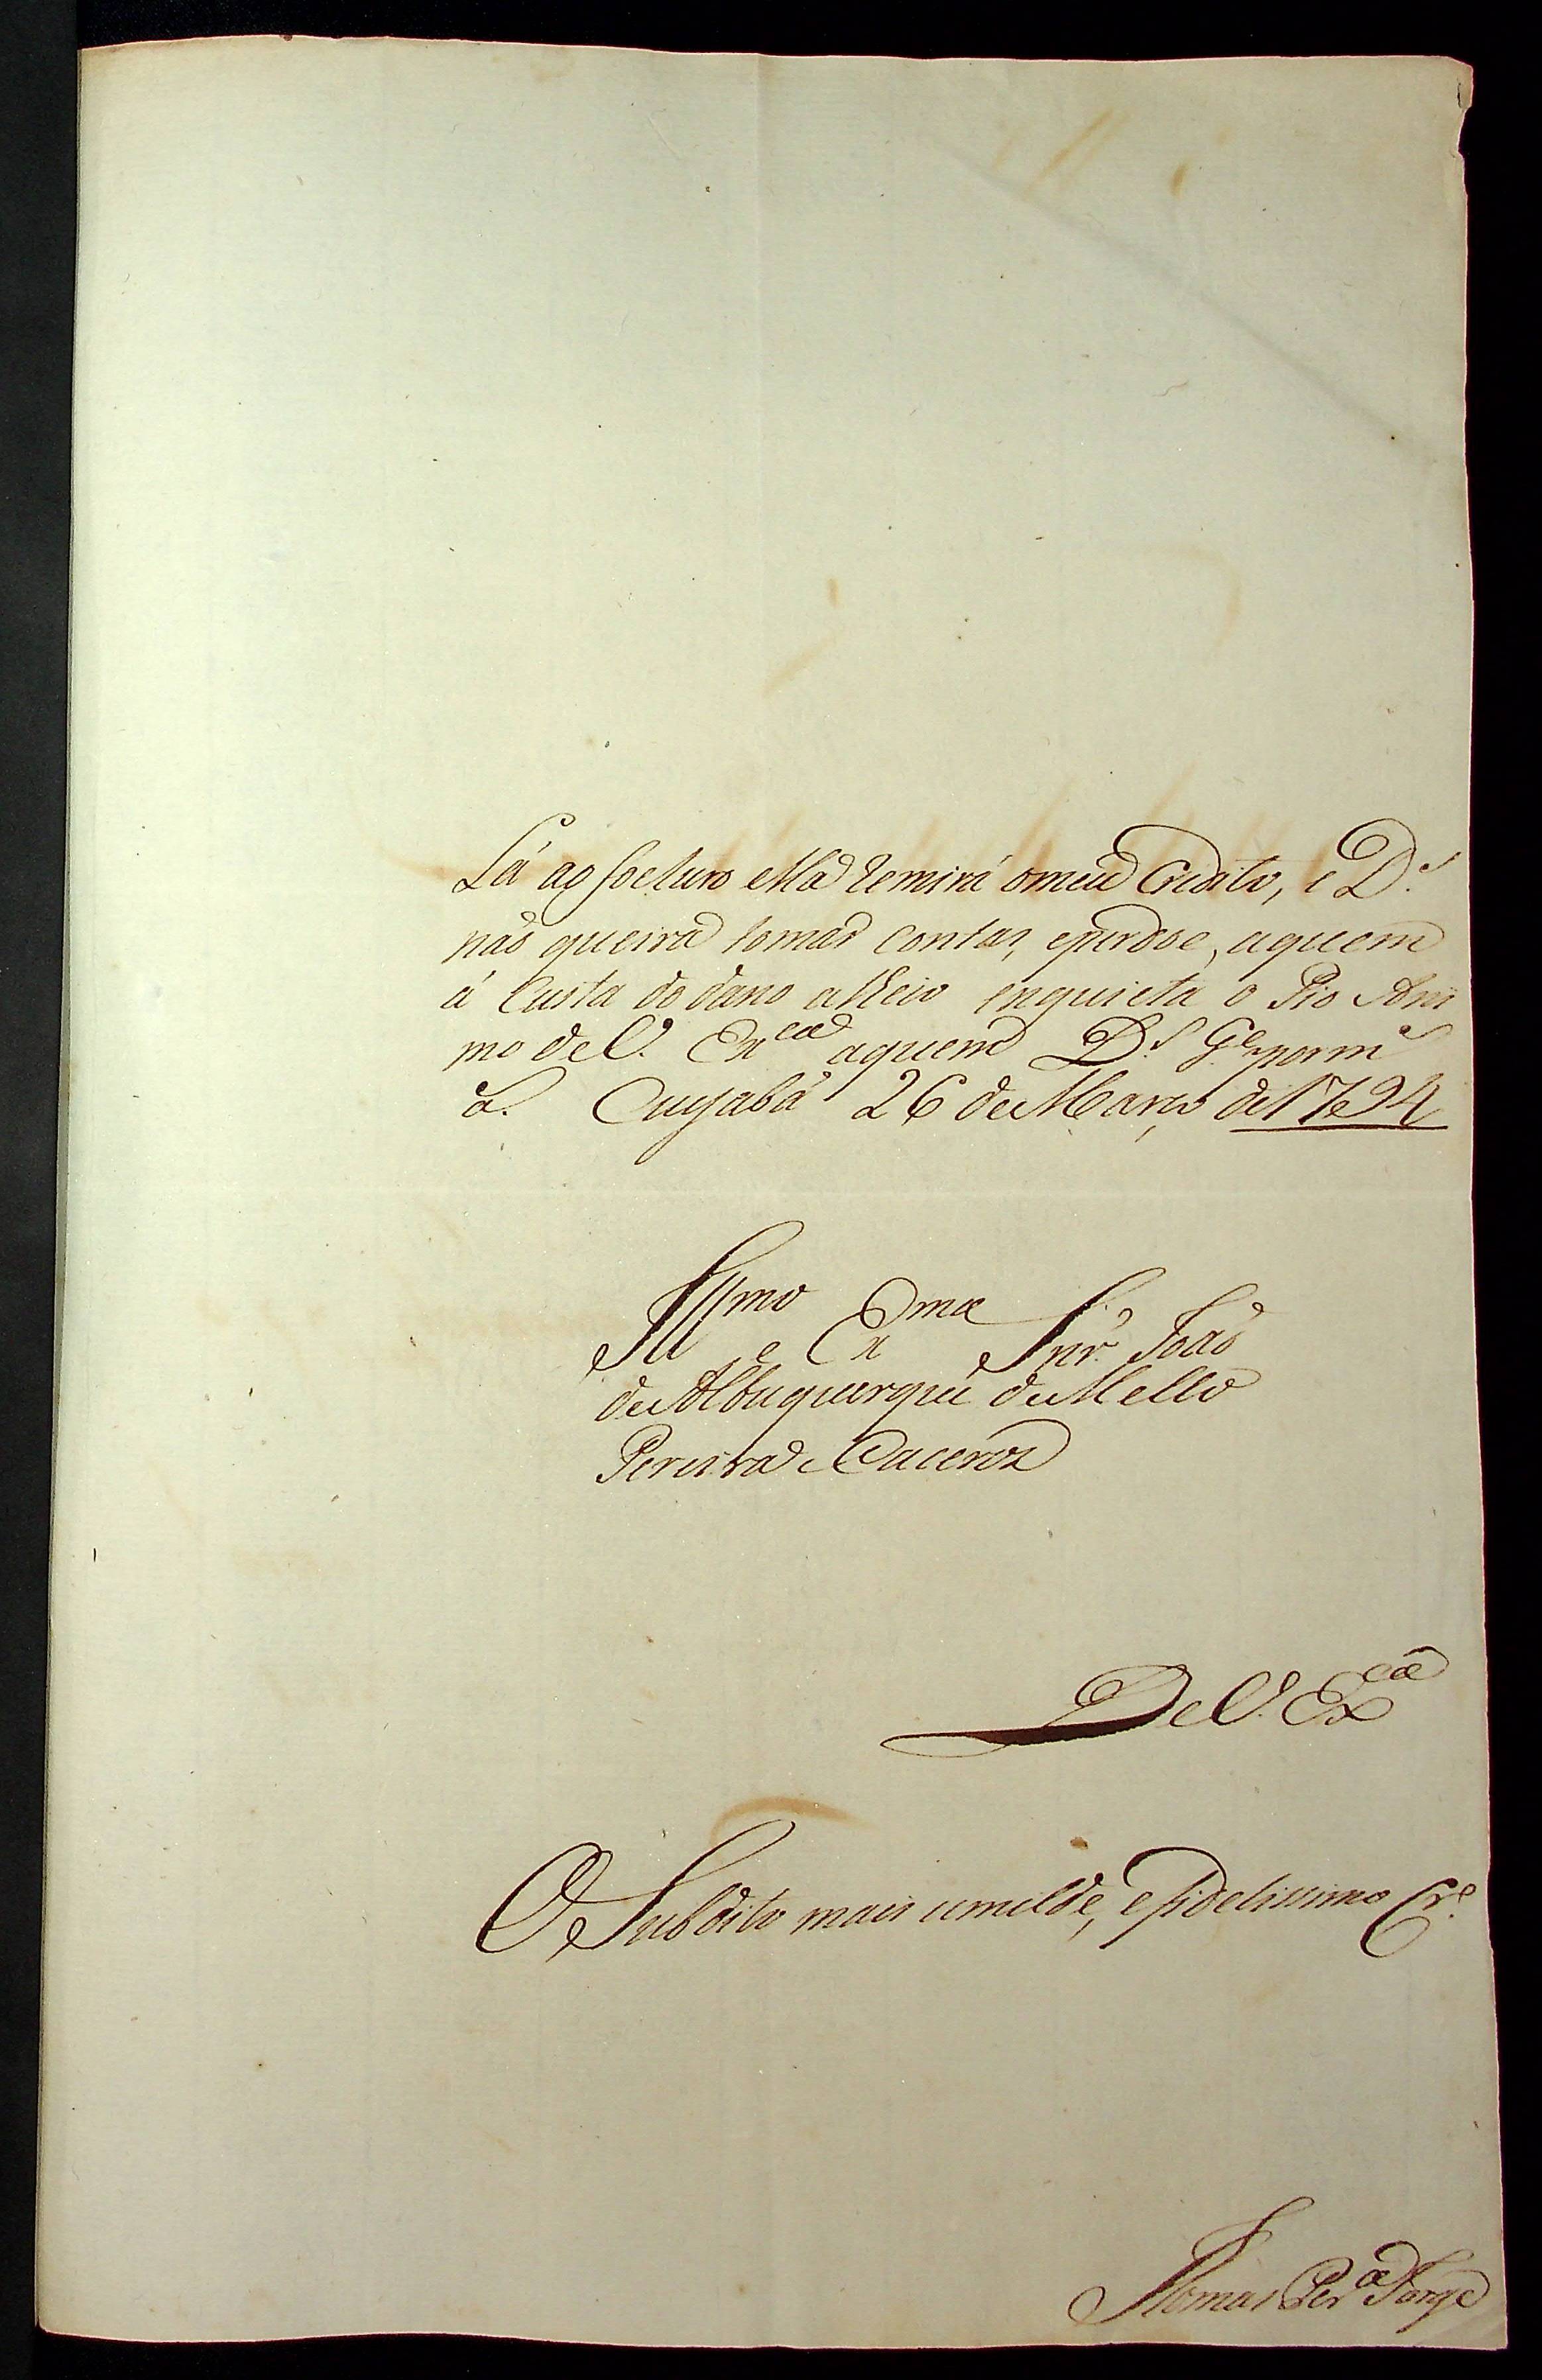 Lá ao foeturo ella remirá o meu Credito, e D.s
não queira tomar contas, e perdoe, aquem
á Custa do dano alheio enquieta o Pio Ani
mo de V. Ex.cia aquem D.s G.e por m.s
a. Cuyabá 26 de Março de 1794
Ill.mo e Ex.mo Snr. João
de Albuquerque de Mello
Pereira e Caceres
De V. Ex.cia
O Subdito mais umilde, e fidelissimo Cr.o
Thomas Per.a Jorge